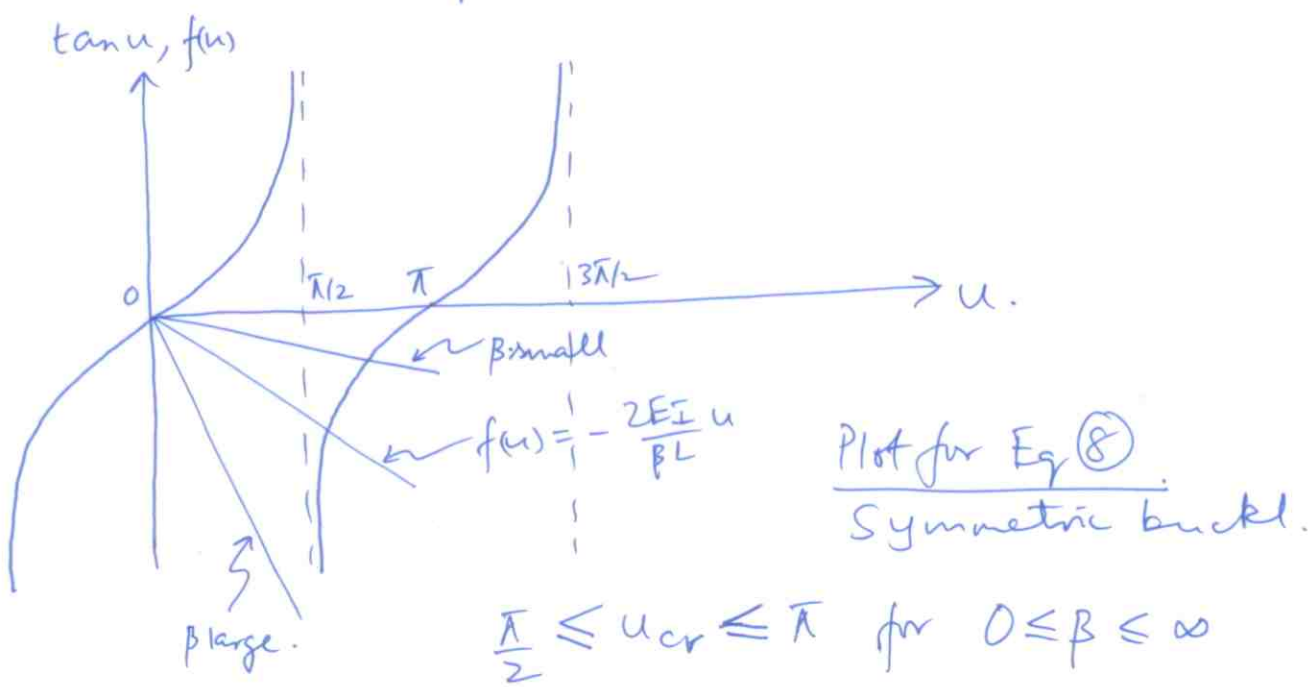 tan u, f(u)
0
π/2
π
3π/2
u.
β: small
f(u) = - 2EI/βL u
Plot for Eq ⑧.
Symmetric buckl.
β large.
π/2 ≤ u_cr ≤ π for 0 ≤ β ≤ ∞